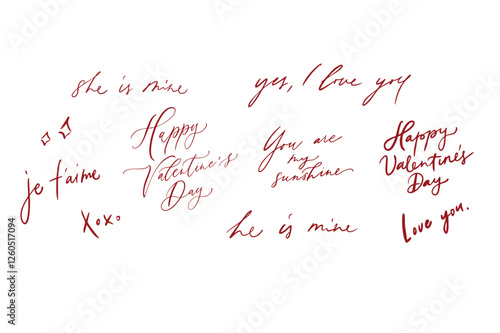 she is mine
yes, I love you
Happy
Valentine's
Day
You are
my
sunshine
Happy
Valentine's
Day
je t'aime
xoxo
he is mine
Love you.
Adobe Stock | #1260517094